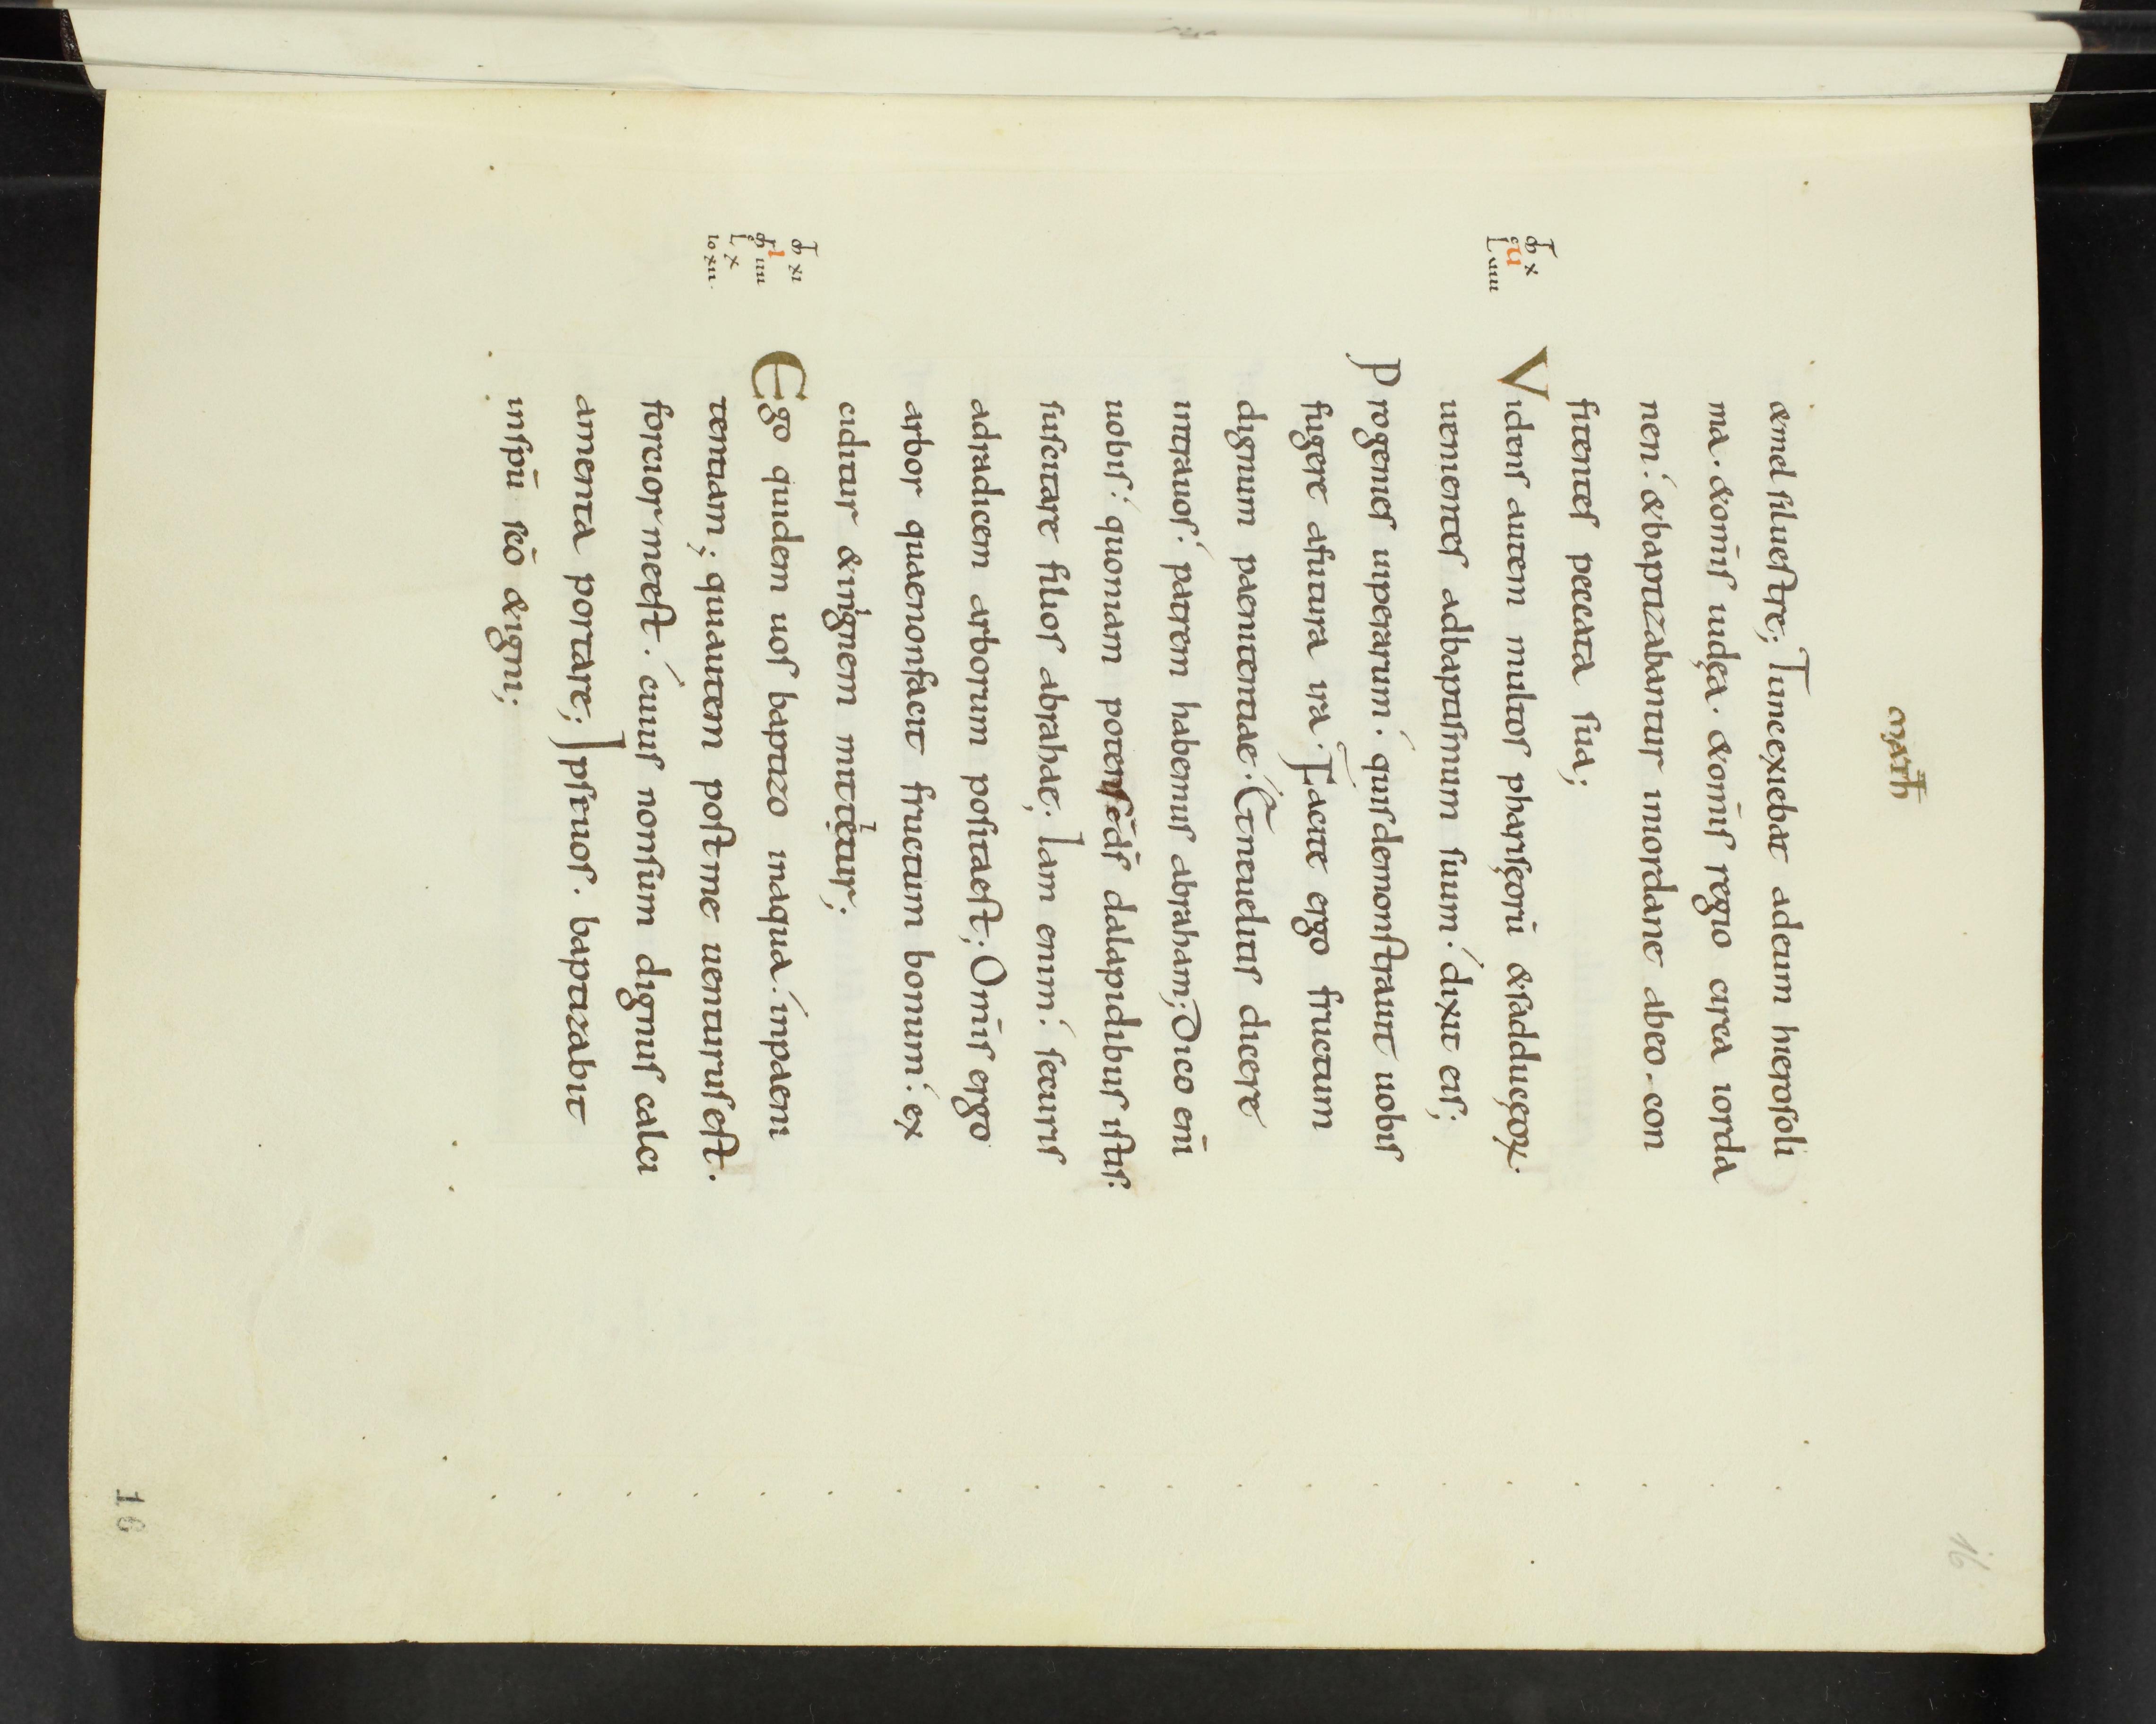 MATTH
& mel siluestre; Tunc exiebat ad eum hierosoli
ma. & om̄is iudęa. & om̄is regio circa iorda
nen. & baptizabantur in iordane ab eo. con
fitentes peccata sua;
M x
u
L uiii
Videns autem multos pharisęorū & sadducęoꝝ.
uenientes ad baptismum suum. dixit eis;
Progenies uiperarum. quis demonstrauit uobis
fugere a futura ira. Facite ergo fructum
dignum paenitentiae. Et ne uelitis dicere
intra uos. patrem habemus abraham; Dico enī
uobis. quoniam potens ē ds̄ de lapidibus istis.
suscitare filios abrahae. Iam enim. securis
ad radicem arborum posita est; Om̄is ergo
arbor quae non facit fructum bonum. ex
ciditur & in ignem mittetur;
M xi
I
M iiii
L x
Io xii.
Ego quidem uos baptizo in aqua. in paeni
tentiam; qui autem post me uenturus est.
fortior me est. cuius non sum dignus calci
amenta portare; Ipse uos. baptizabit
in sp̄u sc̄o & igni;
16
16